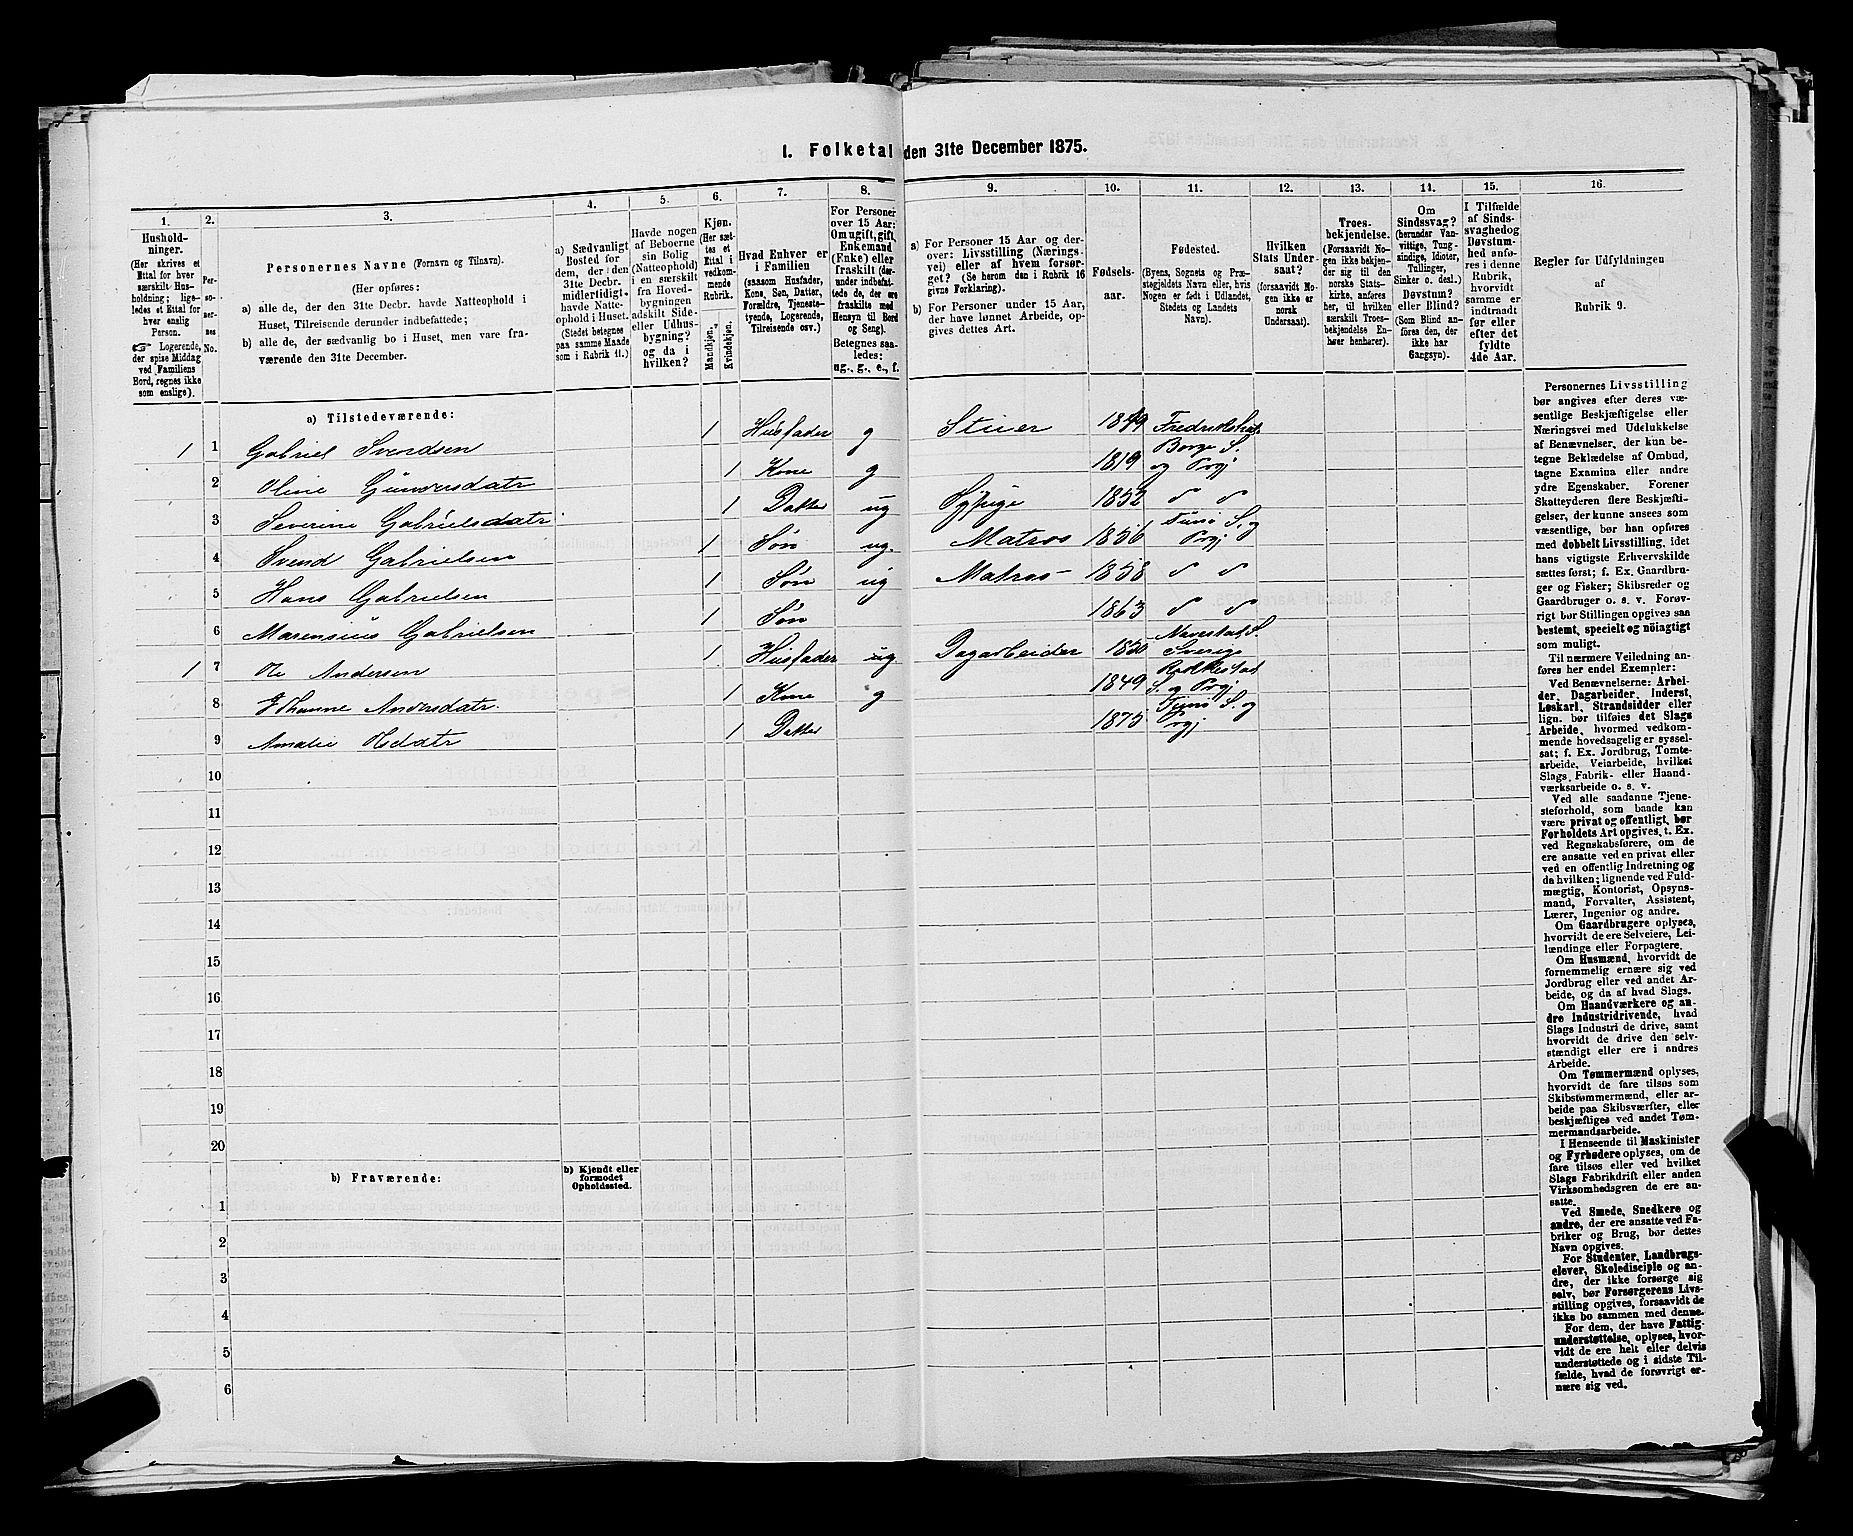 1. Folketal den 31te December 1875.
1.
Hushold-
ninger.
(Her skrives et
Ettal for hver
særskilt Hus-
holdning; lige-
ledes et Ettal for
hver enslig
Person.
Logerende,
der spise Middag
ved Familiens
Bord, regnes ikke
som enslige).
2.
Per-
so-
ner-
nes
No.
3.
Personernes Navne (Fornavn og Tilnavn).
(Her opføres:
a) alle de, der den 31te Decbr. havde Natteophold i
Huset, Tilreisende derunder indbefattede;
b) alle de, der sædvanlig bo i Huset, men vare fra-
værende den 31te December.
4.
a) Sædvanligt
Bosted for
dem, der den
31te Decbr.
midlertidigt
havde Natte-
ophold i Huset.
(Stedet betegnes
paa samme Maade
som i Rubrik 11.)
5.
Havde nogen
af Beboerne
sin Bolig
(Natteophold)
i en særskilt
fra Hoved-
bygningen
adskilt Side-
eller Udhus-
bygning?
og da i
hvilken?
6.
Kjøn.
(Her sæt-
tes et
Ettal i
vedkom-
mende
Rubrik.
Mandkjøn.
Kvindekjøn.
7.
Hvad Enhver er
i Familien
(saasom Husfader,
Kone, Søn, Datter,
Forældre, Tjeneste-
tyende, Logerende,
Tilreisende osv.)
8.
For Personer
over 15 Aar:
Om ugift, gift,
Enkemand
(Enke) eller
fraskilt (der-
under indbefat-
tede de, der ere
fraskilte med
Hensyn til Bord
og Seng).
Betegnes saa-
ledes:
ug., g., e., f.
9.
a) For Personer 15 Aar og der-
over: Livsstilling (Nærings-
vei) eller af hvem forsør-
get? (Se herom den i Rubrik 16
givne Forklaring).
b) For Personer under 15 Aar,
der have lønnet Arbeide, op-
gives dettes Art.
10.
Fødsels-
aar.
11.
Fødested.
(Byens, Sognets og Præ-
stegjeldets Navn eller, hvis
Nogen er født i Udlandet,
Stedets og Landets
Navn).
12.
Hvilken
Stats Under-
saat?
(forsaavidt No-
gen ikke er
norsk
Undersaat).
13.
Troes-
bekjendelse.
(Forsaavidt No-
gen ikke bekjen-
der sig til den
norske Stats-
kirke, anføres
her, til hvilken
særskilt Troes-
bekjendelse En-
hver henhører).
14.
Om
Sindssvag?
(herunder Van-
vittige, Tung-
sindige, Idioter,
Tullinger,
Sinker o. desl.)
Døvstum?
eller Blind?
(Som Blind an-
føres den, der
ikke har
Gangsyn).
15.
I Tilfælde
af Sinds-
svaghed og
Døvstum-
hed anfø-
res i denne
Rubrik,
hvorvidt
samme er
indtraadt
før eller
efter det
fyldte
4de Aar.
16.
Regler for Udfyldningen
af
Rubrik 9.
a) Tilstedeværende:
1 1 Gabriel Svendsen 1 Husfader g Stuer 1849 Fredrikstad
2 Oline Gunersdatr 1 Kone g 1819 Borge S. og Prgj
3 Severine Gabrielsdatr 1 Datter ug Sypige 1852 " "
4 Svend Gabrielsen 1 Søn ug. Matros 1856 Tunø S. og Prgj
5 Hans Gabrielsen 1 Søn ug Matros 1858 " "
6 Marensius Gabrielsen 1 Søn 1863 " "
1 7 Ole Andersen 1 Husfader ug Dagarbeider 1850 Navestad S. Sverige
8 Johanne Andersdatr. 1 Kone g 1849 Rakkestad S. og Prgj
9 Amalie Olsdatr 1 Datter 1875 Tunø S. og Prgj
10
11
12
13
14
15
16
17
18
19
20
b) Fraværende:
b) Kjendt eller
formodet
Opholdssted.
1
2
3
4
5
6
Personernes Livsstilling
bør angives efter deres væ-
sentlige Beskjæftigelse eller
Næringsvei med Udelukkelse
af Benævnelser, der kun be-
tegne Beklædelse af Ombud,
tagne Examina eller andre
ydre Egenskaber. Forener
Skatteyderen flere Beskjæfti-
gelser, der kunne ansees som
væsentlige, bør han opføres
med dobbelt Livsstilling, idet
hans vigtigste Erhvervskilde
sættes først; f. Ex. Gaardbru-
ger og Fisker; Skibsreder og
Gaardbruger o. s. v. Forøv-
rigt bør Stillingen opgives saa
bestemt, specielt og nøiagtigt
som muligt.
Til nærmere Veiledning an-
føres her endel Exempler:
Ved Benævnelserne: Arbei-
der, Dagarbeider, Inderst,
Løskarl, Strandsidder eller
lign. bør tilføies det Slags
Arbeide, hvormed vedkom-
mende hovedsagelig er syssel-
sat; f. Ex. Jordbrug, Tomte-
arbeide, Veiarbeide, hvilket
Slags Fabrik- eller Haand-
værksarbeide o. s. v.
Ved alle saadanne Tjene-
steforhold, som baade kan
være privat og offentligt, bør
Forholdets Art opgives, t. Ex.
ved Regnskabsførere, om de
ere ansatte ved en privat eller
ved en offentlig Indretning og
da hvilken; lignende ved Fuld-
mægtig, Kontorist, Opsyns-
mand, Forvalter, Assistent,
Lærer, Ingeniør og andre.
Om Gaardbrugere oplyses,
hvorvidt de ere Selveiere, Lei-
lændinge eller Forpagtere.
Om Husmænd, hvorvidt de
fornemmelig ernære sig ved
Jordbrug eller ved andet Ar-
beide, og da af hvad Slags.
Om Haandværkere og an-
dre Industridrivende, hvad
Slags Industri de drive, samt
hvorvidt de drive den selv-
stændigt eller ere i andres
Arbeide.
Om Tømmermænd oplyses,
hvorvidt de fare tilsøs som
Skibstømmermænd, eller ar-
beide paa Skibsværfter, eller
beskjæftiges ved andet Tøm-
mermandsarbeide.
I Henseende til Maskinister
og Fyrbødere oplyses, om de
fare tilsøs eller ved hvilket
Slags Fabrikdrift eller anden
Virksomhedsgren de ere an-
satte.
Ved Smede, Snedkere og
andre, der ere ansatte ved Fa-
briker og Brug, bør dettes
Navn opgives.
For Studenter, Landbrugs-
elever, Skoledisciple og an-
dre, der ikke forsørge sig
selv, bør Forsørgerens Livs-
stilling opgives, forsaavidt de
ikke bo sammen med denne.
For dem, der have Fattig-
understøttelse, oplyses, hvor-
vidt de ere helt eller delvis
understøttede og i sidste Til-
fælde, hvad de forøvrigt er-
nære sig ved.